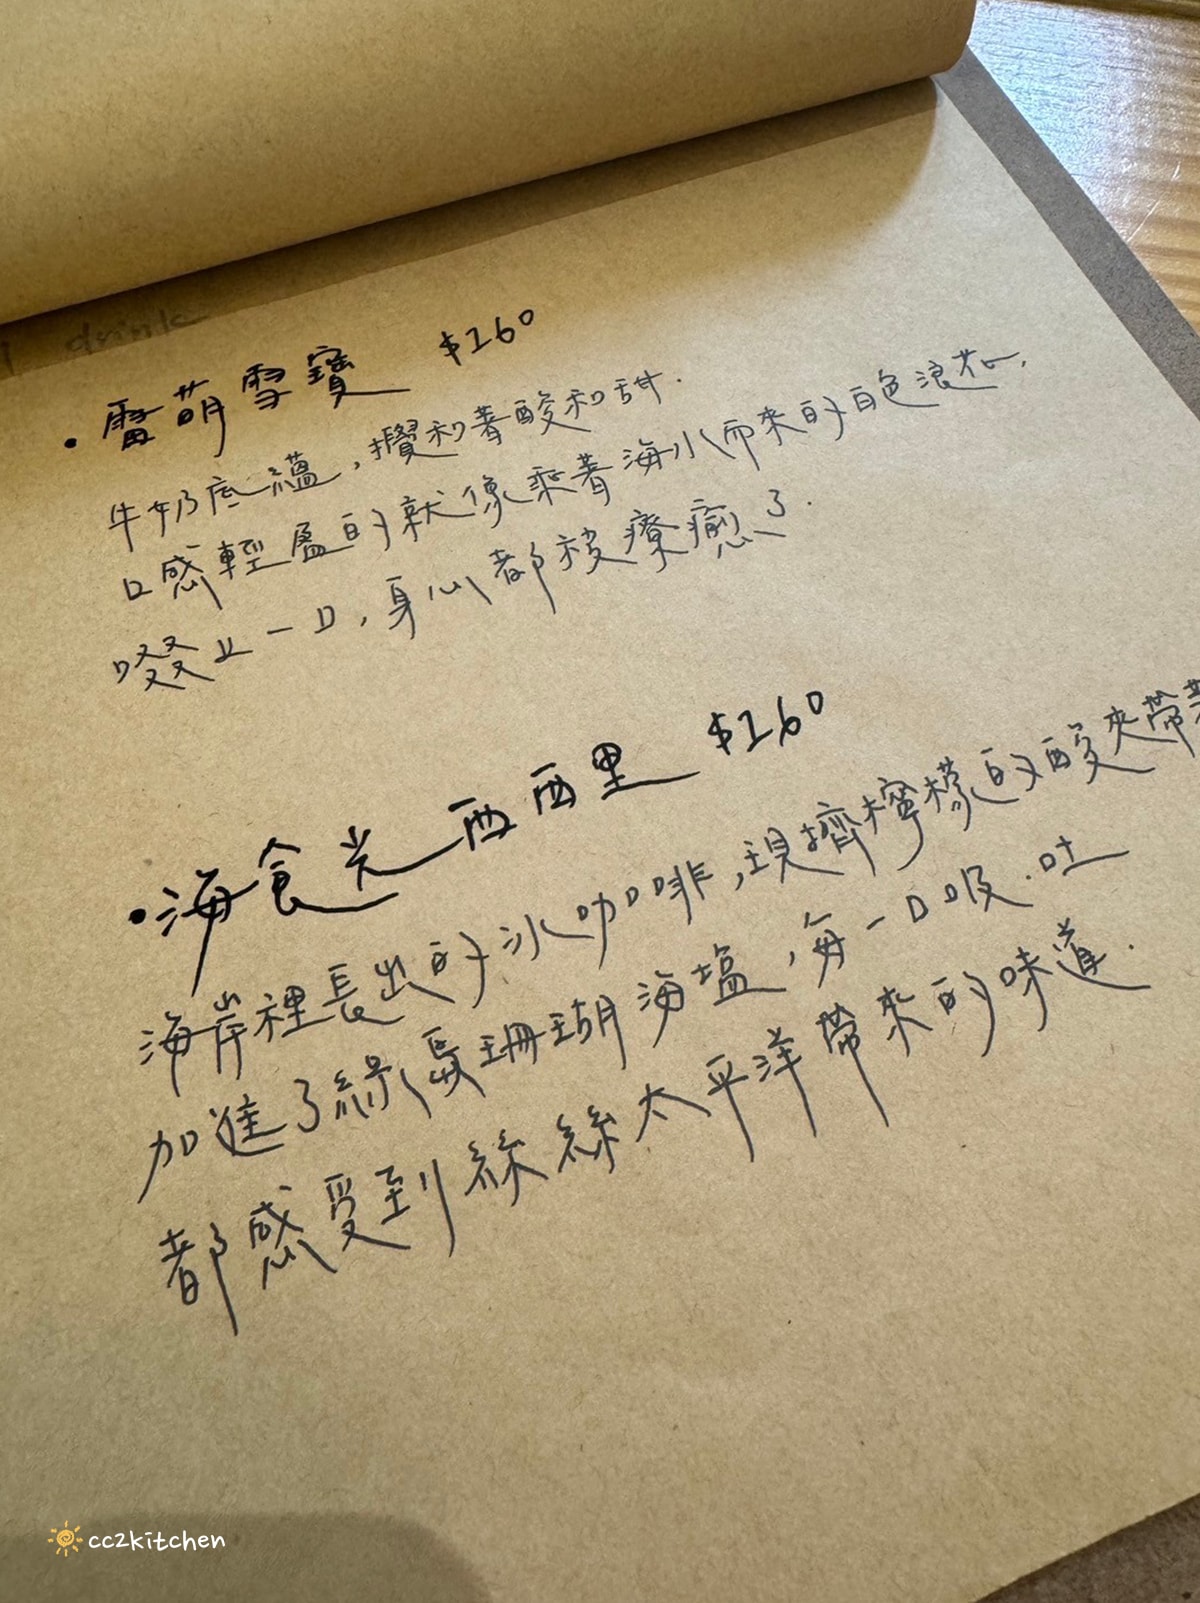 drink
・雷萌雪寶 $160
牛奶底蘊,攪和著酸和甜.
口感輕盈的就像乘著海水而來的白色浪花,
啜上一口,身心都被療癒了.
・海食光西西里 $160
海岸裡長出的冰咖啡,現擠檸檬的酸夾帶著
加進了綠島珊瑚海塩,每一口吸.吐
都感受到絲絲太平洋帶來的味道.
cc2kitchen